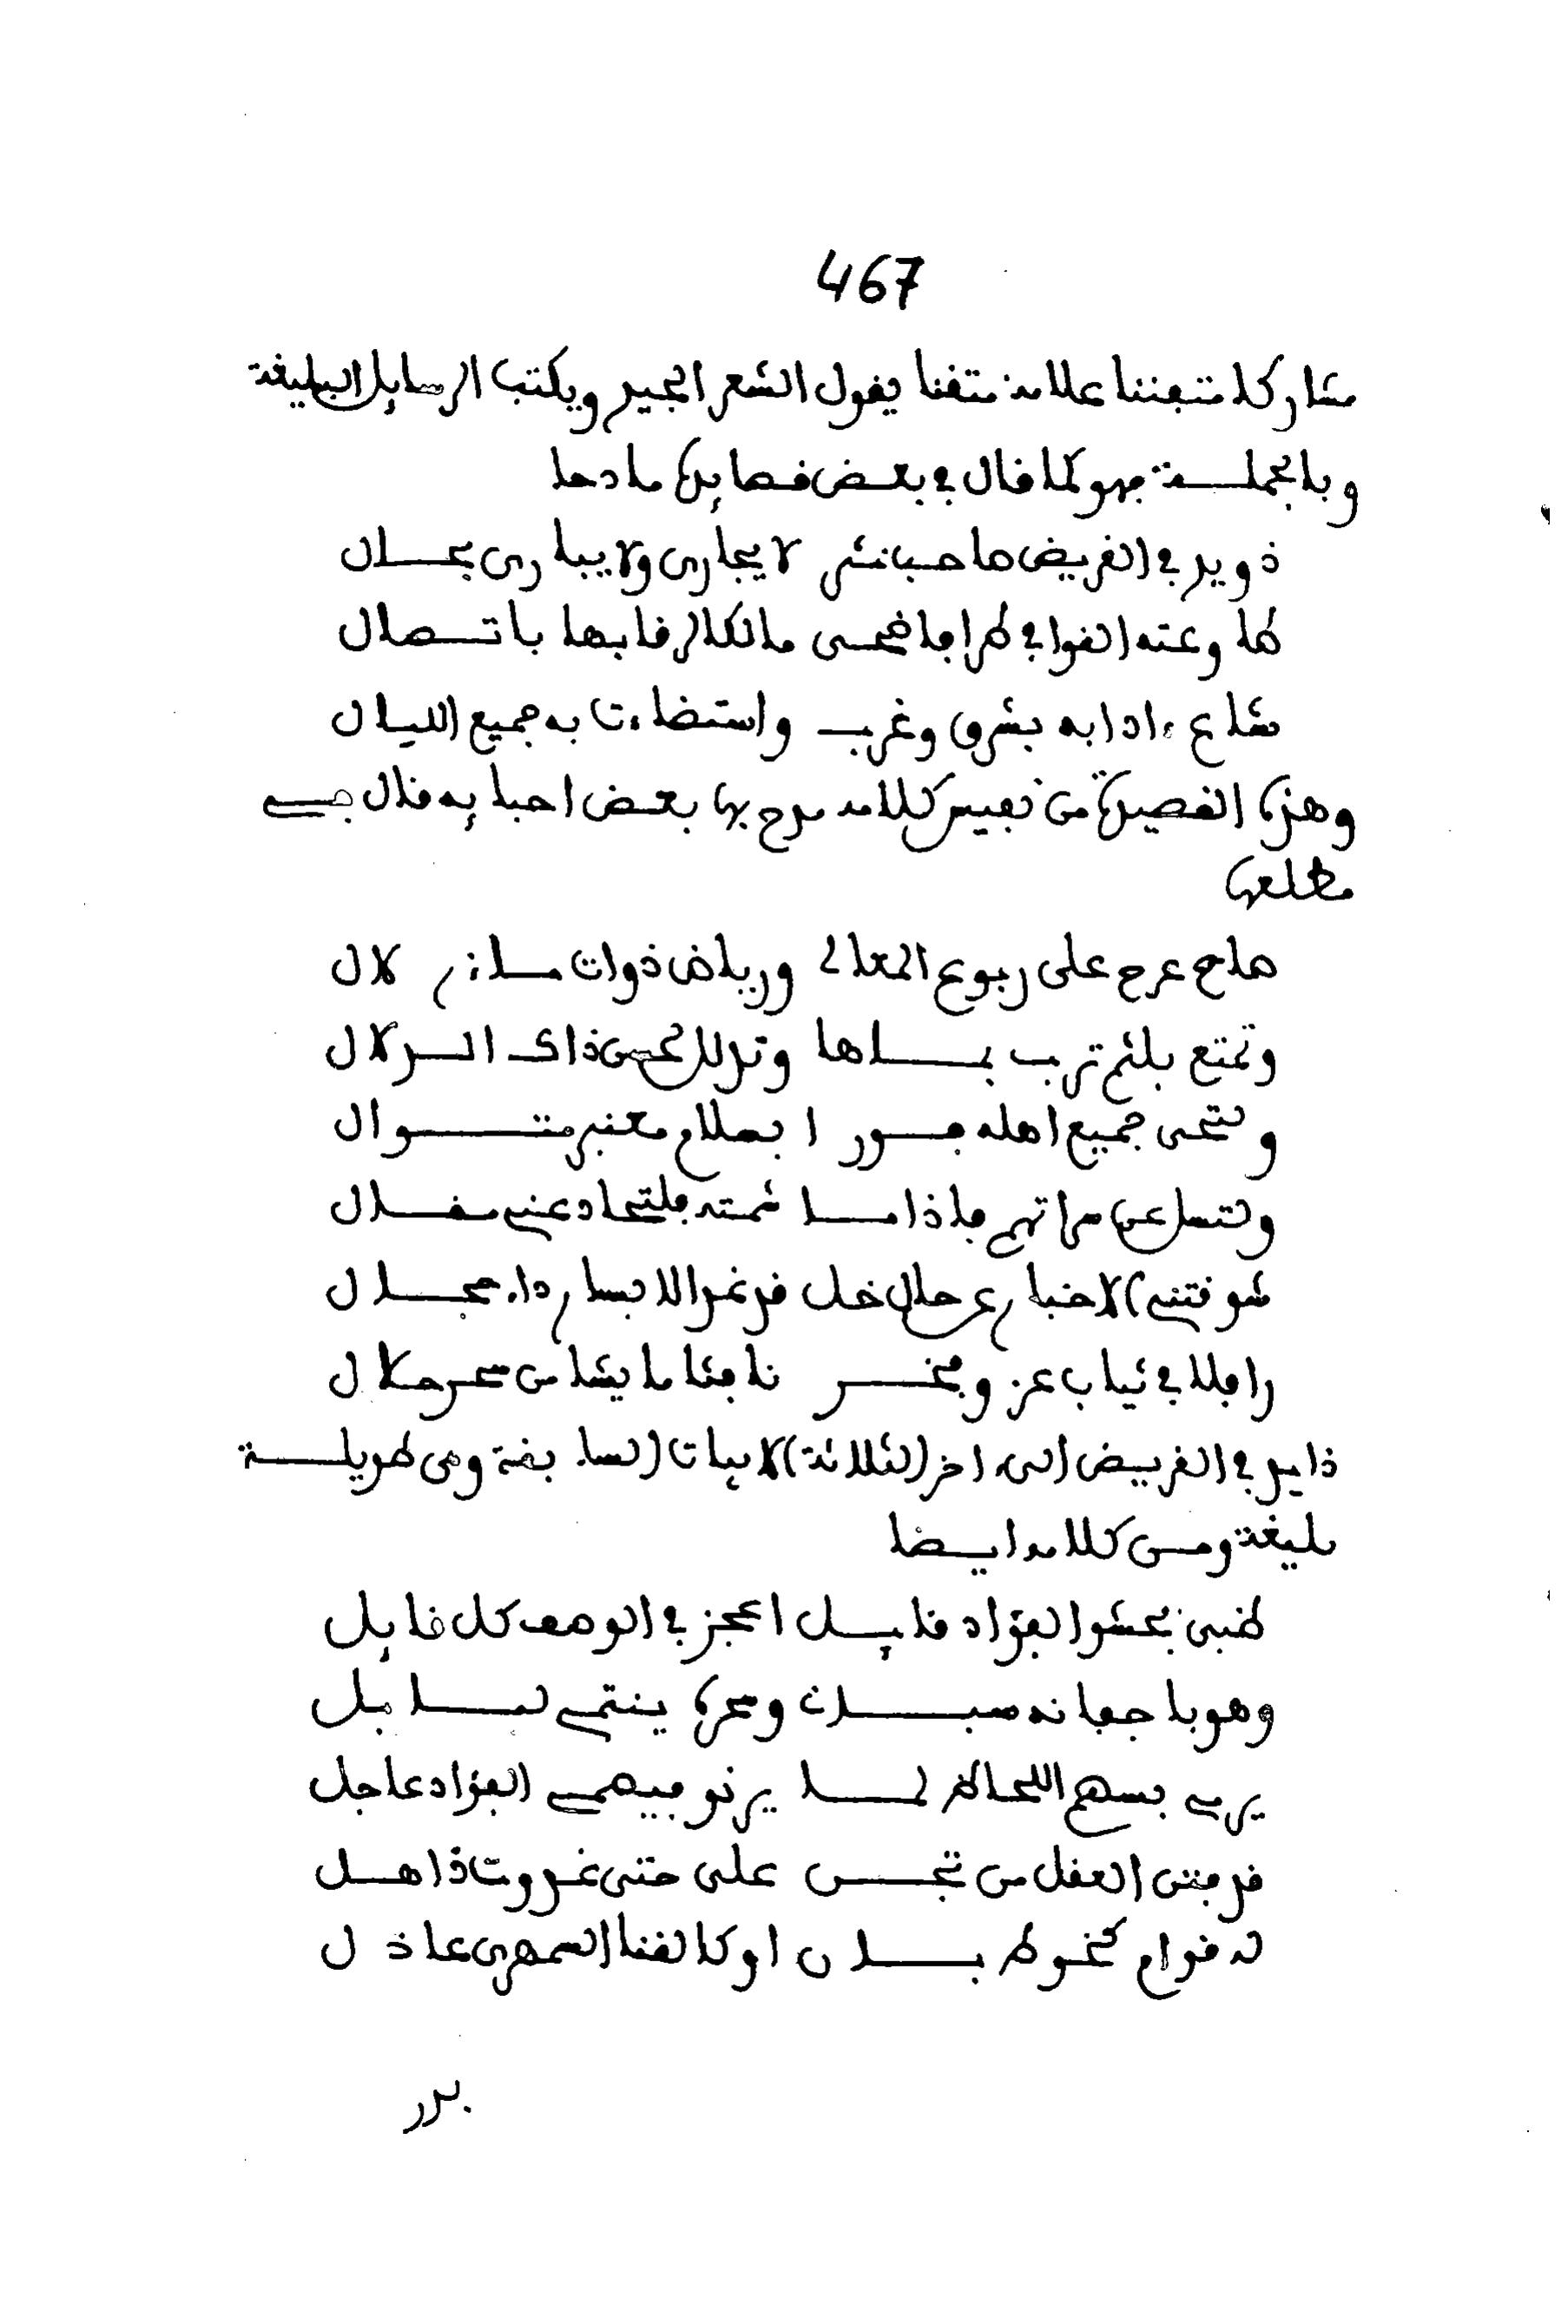 467
مشاركا متفننا علامة متقنا يقول الشعر الجيد ويكتب الرسايل البليغة
وبالجملة فهو كما قال في بعض قصايده مادحا
ذو يد في القريض صاحب نثر لا يجارى ولا يبارى بحال
طاوعته القوافي طرا فاضحى مالكا لرقابها باتصال
شاع ءادابه بشرق وغرب واستضاءت به جميع الليال
وهذه القصيدة من نفيس كلامه مدح بها بعض احبايه قال في
مطلعها
صاح عرج على ربوع المعالي ورياض ذوات ... لال
وتمتع بلثم ترب بساها وتذلل لحسن ذاك الدلال
ولتحي جميع اهله فورا بسلام معنبر متوال
ولتسل عن سراتهم فاذا ما شمته فلتحاد عني مقال
شوقتني الاخبار عن حال خل قد غدا لابسا رداء جلال
رافلا في ثياب عز وفخر نافثا ما يشا من سحر حلال
ذا يد في القريض الى ءاخر الثلاثة الابيات السابقة وهي طويلة
بليغة ومن كلامه ايضا
ظبي بحشو الفؤاد قايل اعجز في الوصف كل قايل
وهو باجفانه سبان وسحره ينتمي لبابل
يرمي بسهم اللحاظ لما يرنو فيصمي الفؤاد عاجل
قد فتن العقل من تجن علي حتى غدوت ذاهل
له قوام كخوط بان او كالقنا السمهري عاذل
بدر